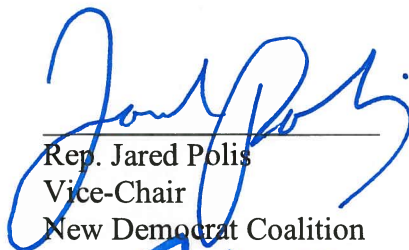 Jared Polis
Rep. Jared Polis
Vice-Chair
New Democrat Coalition